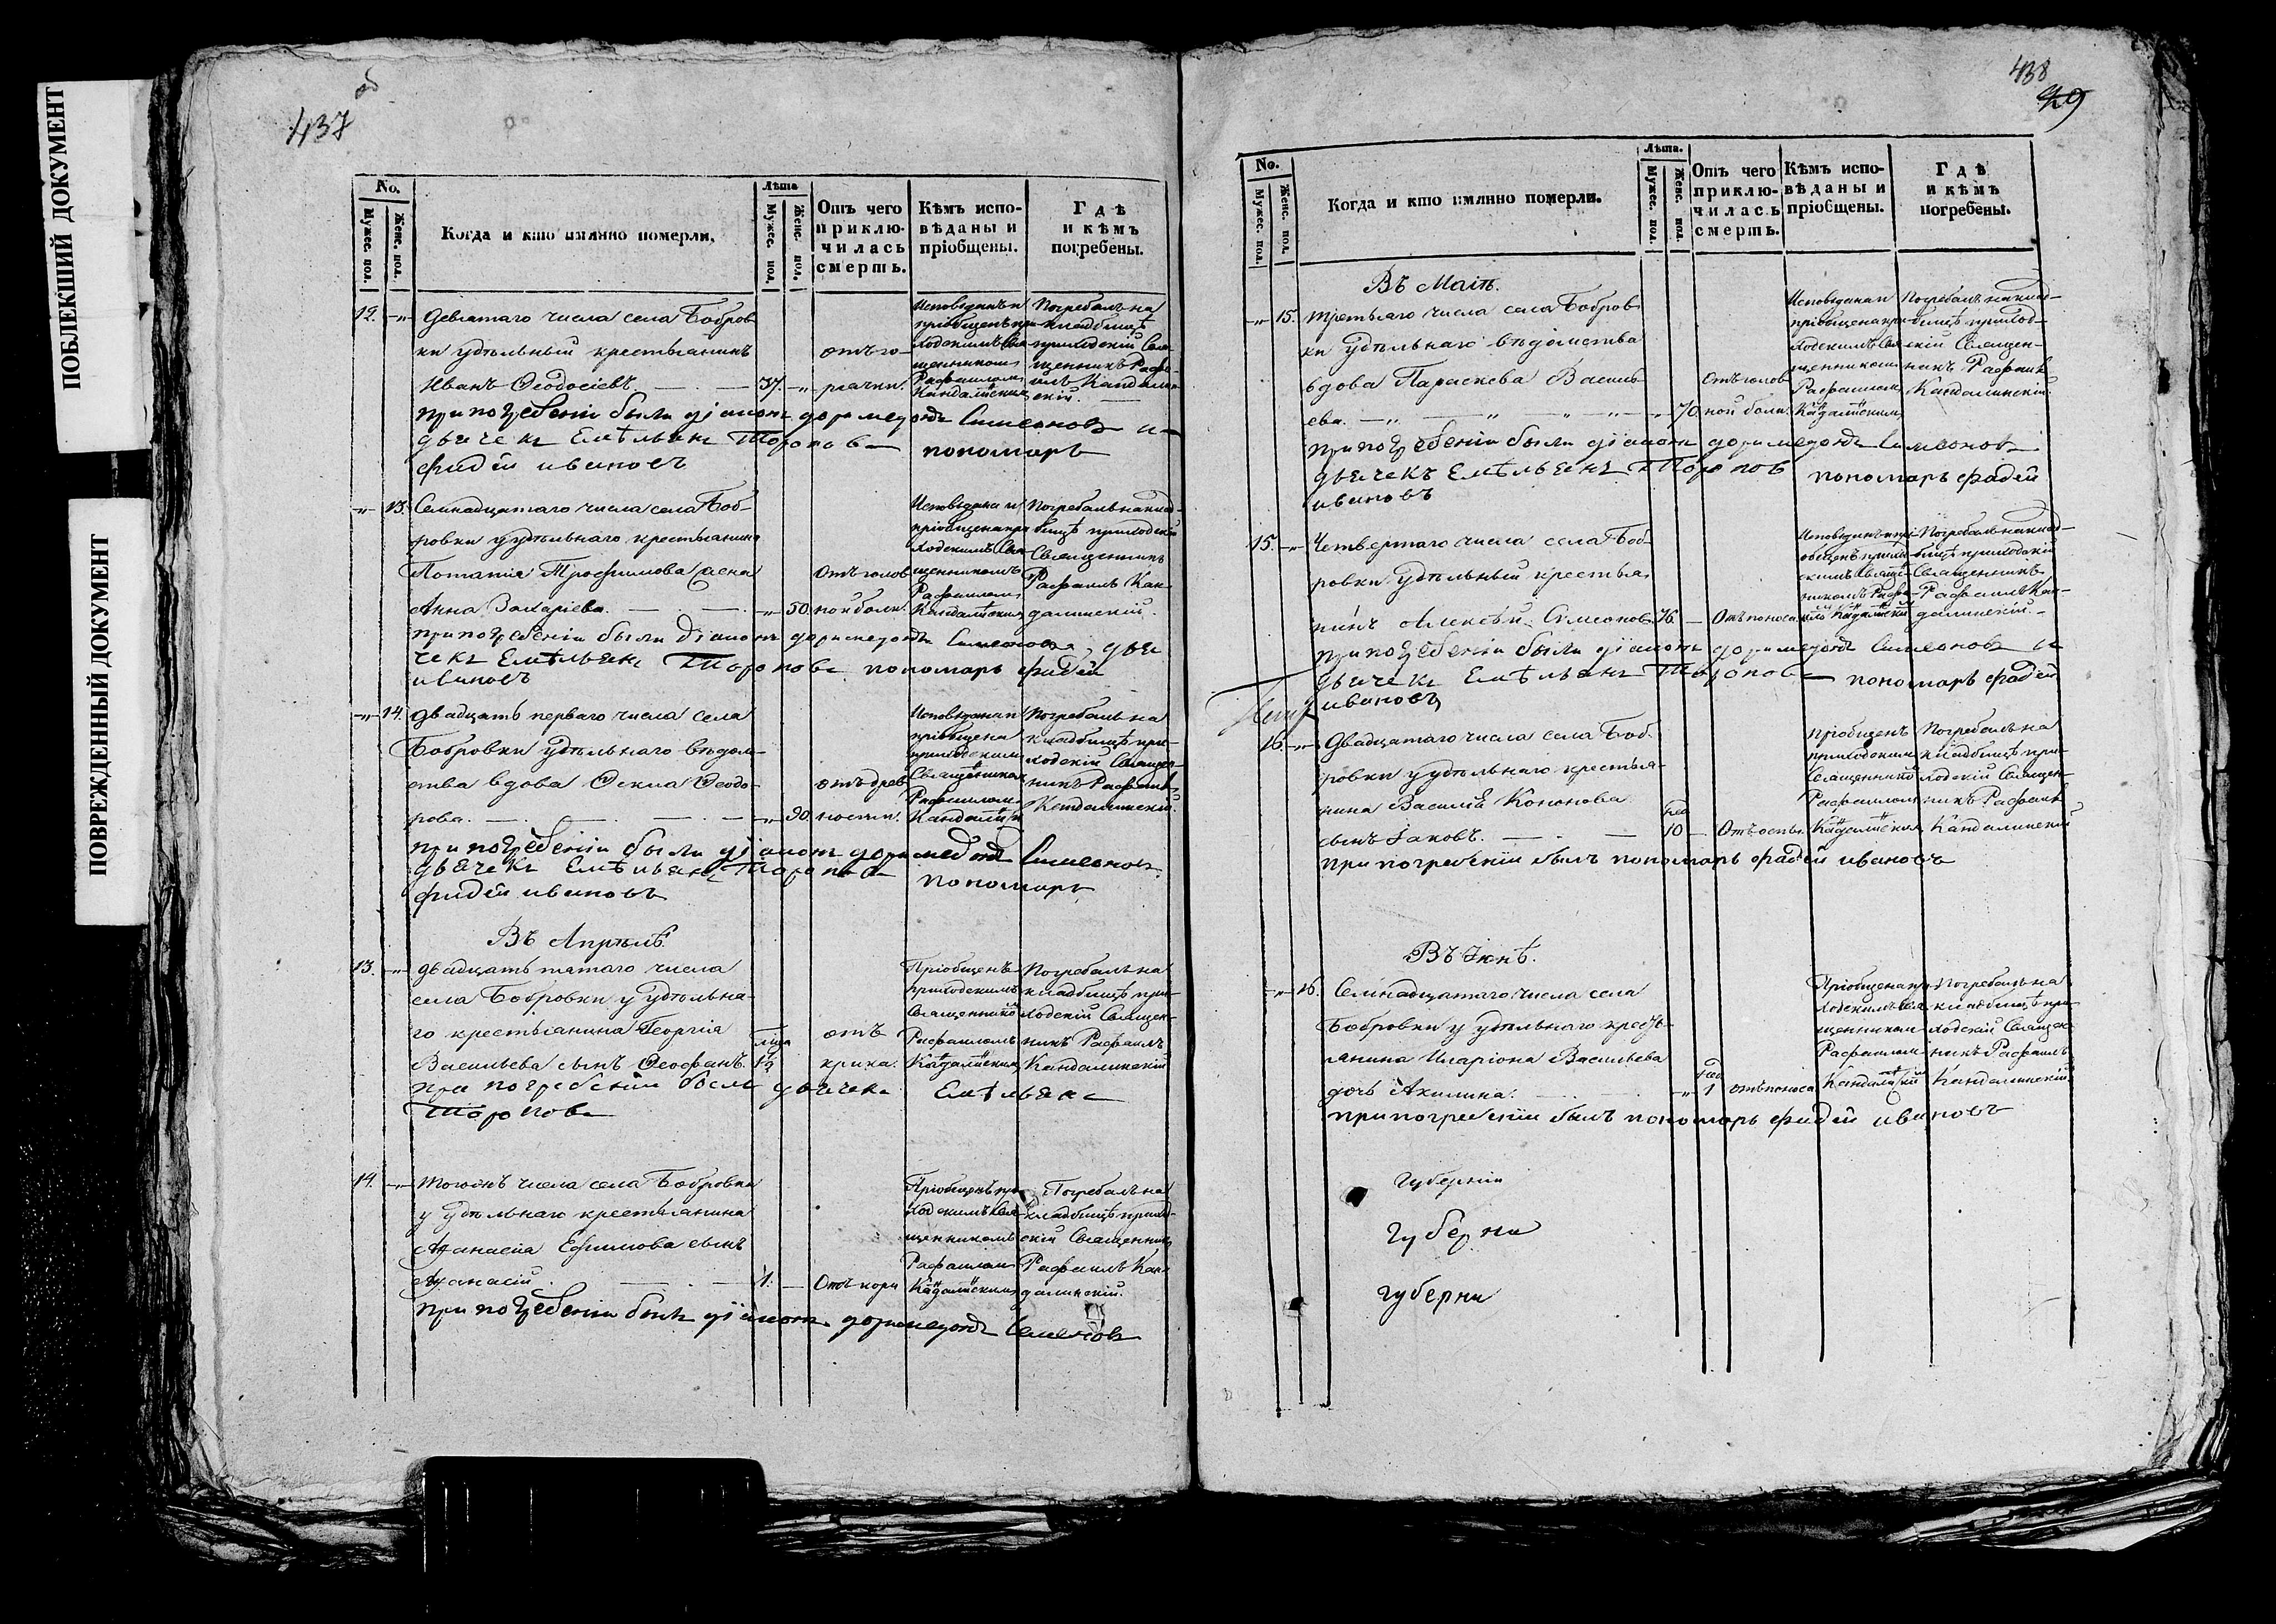 ПОБЛЕКШИЙ ДОКУМЕНТ
ПОВРЕЖДЕННЫЙ ДОКУМЕНТ
437 об
No. Лѣта
Мужес. пол. Женс. пол. Когда и кто имянно померли. Мужес. пол. Женс. пол. Отъ чего приключилась смерть. Кѣмъ исповѣданы и пріобщены. Гдѣ и кѣмъ погребены.
12. -„- Девятаго числа села Бобров
ки удѣльный крестьянинъ
Иванъ Ѳеодосіевъ. — 37. „
отъ го-
рячки.
Исповѣданъ и
пріобщенъ при-
ходскимъ Свя
щенникомъ
Рафаиломъ
Кандалинским
Погребалъ на
кладбищѣ
приходскій Свя
щенникъ Рафа-
илъ Кандалин-
скій.
при погребеніи были діаконъ доримедонтъ Симеоновъ и
дьячекъ Емѣльянъ Тороповъ пономарь
фадѣй ивановъ
-„- 13. Семнадцатаго числа села Боб-
ровки у удѣльнаго крестьянина
Потапія Трофимова жена
Анна Захаріева. — „ 50.
Отъ голов
ной боли.
Исповѣдана и
пріобщена при
ходскимъ Свя
щенникомъ
Рафаиломъ
Кандалинским
Погребалъ на клад-
бищѣ приходскій
Священникъ
Рафаилъ Кан-
далинскій.
при погребеніи были діаконъ доримедонтъ Симеоновъ, дья
чекъ Емѣльянъ Тороповъ пономарь фадѣй
ивановъ
-„- 14. Двадцать перваго числа села
Бобровки удѣльнаго вѣдом-
ства вдова Ѳекла Ѳеодо-
рова. — „ 90.
отъ древ
ности.
Исповѣдана и
пріобщена
приходским
Священником
Рафаилом
Кандалин
Погребалъ на
кладбищѣ при-
ходскій Священ-
никъ Рафаилъ
Кандалинскій.
при погребеніи были діаконъ доримедонтъ Симеоновъ
дьячекъ Емѣльянъ Тороповъ пономарь
фадѣй ивановъ
Въ Апрѣлѣ.
13. -„- двадцать пятаго числа
села Бобровки у удѣльна-
го крестьянина Георгія
Васильева сынъ Ѳеофанъ. ½
отъ
крика.
Пріобщенъ
приходскимъ
Священнико
Рафаиломъ
Кандалинским
Погребалъ на
кладбищѣ при-
ходскій Священ-
никъ Рафаилъ
Кандалинскій
при погребеніи былъ дьячекъ Емѣльянъ
Тороповъ
14. -„- Тогожъ числа села Бобровки
у удѣльнаго крестьянина
Аѳанасія Ефимова сынъ
Аѳанасій. — 1. —
Отъ кори
Пріобщенъ при
ходскимъ Свя
щенникомъ
Рафаилом
Кандалинским
Погребалъ на
кладбищѣ приход-
скій Священник
Рафаилъ Кан-
далинскій.
при погребеніи былъ діаконъ доримедонтъ Семеновъ
438
29
No. Лѣта.
Мужес. пол. Женс. пол. Когда и кто имянно померли. Мужес. пол. Женс. пол. Отъ чего приключилась смерть. Кѣмъ исповѣданы и пріобщены. Гдѣ и кѣмъ погребены.
Въ Маіѣ.
-„- 15. Третьяго числа села Бобров
ки Удѣльнаго вѣдомства
вдова Параскева Василь
ева. — „ 70.
Отъ голов
ной боли.
Исповѣдана и
пріобщена при
ходскимъ Свя
щенником
Рафаилом
Кандалинским
Погребалъ на клад-
бищѣ приход-
скій Священ-
никъ Рафаилъ
Кандалинскій.
при погребеніи были діаконъ доримедонтъ Симеоновъ
дьячекъ Емѣльянъ Тороповъ пономарь фадѣй
ивановъ
15. -„- Четвертаго числа села Боб-
ровки Удѣльный крестья
нинъ Алексѣй Симеоновъ 76. —
Отъ поноса
Исповѣданъ и прі-
общенъ приход
скимъ Свяще-
нникомъ Рафа-
иломъ Кандалински
Погребалъ на клад-
бищѣ приходскій
Священникъ
Рафаилъ Кан-
далинскій.
при погребеніи были діаконъ доримедонтъ Симеоновъ и
дьячекъ Емѣльянъ Тороповъ пономарь фадѣй
ивановъ
16. -„- Двадцатаго числа села Боб-
ровки у удѣльнаго крестья-
нина Василія Кононова
сынъ Іаковъ. — 10 —
Отъ оспы.
Пріобщенъ
приходским
Священнико
Рафаилом
Кандалинским
Погребалъ на
кладбищѣ при-
ходскій Священ-
никъ Рафаилъ
Кандалинскій
при погребеніи былъ пономарь фадѣй ивановъ
Въ Іюнѣ.
-„- 16. Семнадцатаго числа села
Бобровки у удѣльнаго кресть
янина Иларіона Васильева
дочь Акилина. „ 1
отъ поноса
Пріобщена при
ходскимъ Свя
щенником
Рафаилом
Кандалинским
Погребалъ на
кладбищѣ при-
ходскій Священ
никъ Рафаилъ
Кандалинскій.
при погребеніи былъ пономарь фадѣй ивановъ
Губерніи
Губерни
Губерни